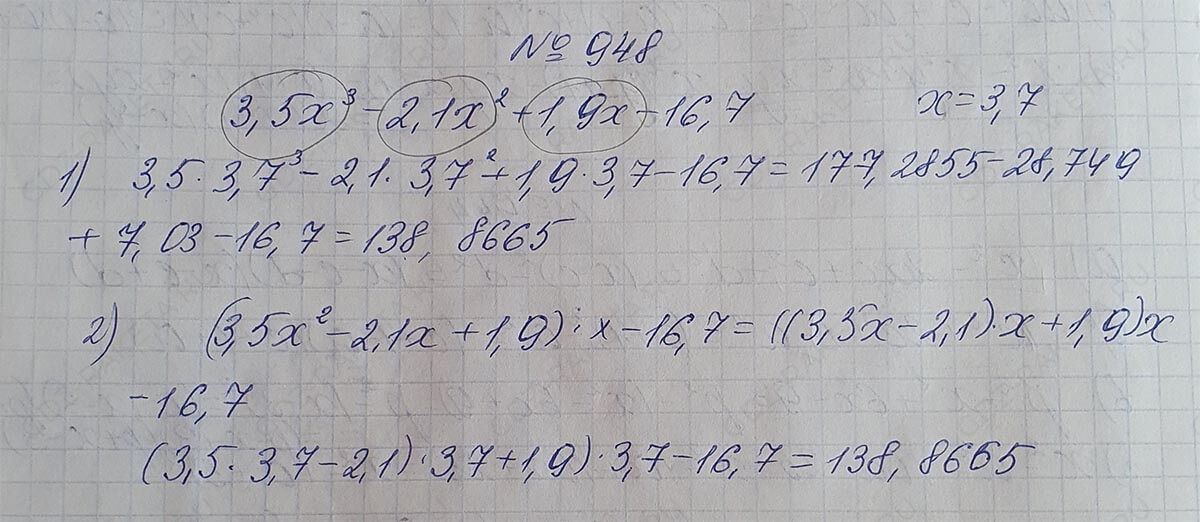 № 948
3,5x³ - 2,1x² + 1,9x - 16,7 x = 3,7
1) 3,5 · 3,7³ - 2,1 · 3,7² + 1,9 · 3,7 - 16,7 = 177,2855 - 28,749
+ 7,03 - 16,7 = 138,8665
2) (3,5x² - 2,1x + 1,9) · x - 16,7 = ((3,5x - 2,1) · x + 1,9)x
- 16,7
(3,5 · 3,7 - 2,1) · 3,7 + 1,9) · 3,7 - 16,7 = 138,8665